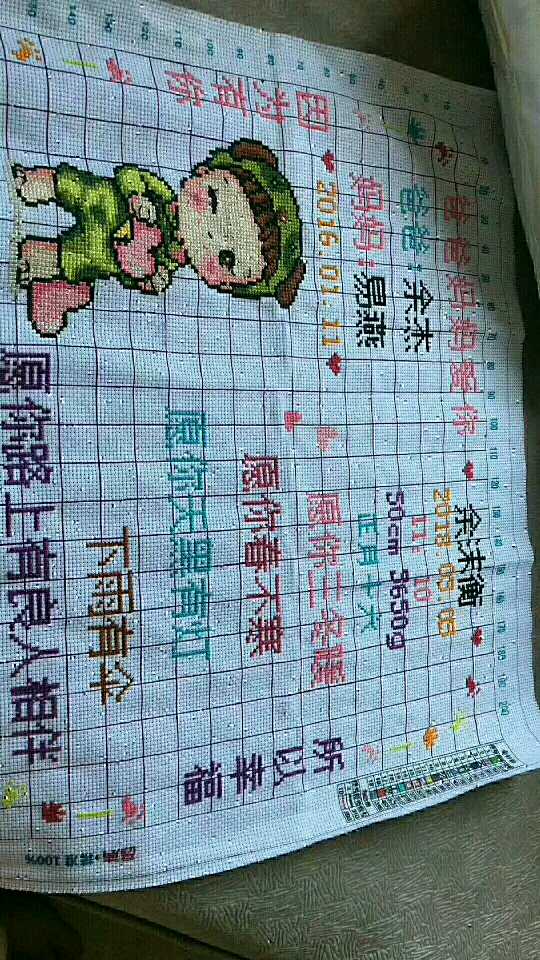 爸爸妈妈爱你
爸爸：余杰
妈妈：易燕
2016.01.11
因为有你
余沐衡
2018 03 03
11:10
50cm 3650g
正月十六
愿你三冬暖
愿你春不寒
愿你天黑有灯
下雨有伞
愿你路上有良人相伴
所以幸福
100%